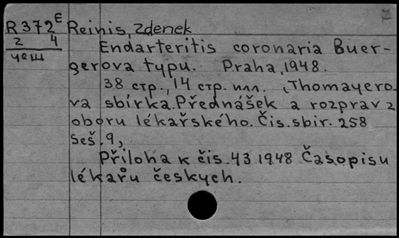 R372E Reinis, Zdenek
2 4 Endarteritis coronaria Buer-
чеш gerova typu. Praha, 1948.
38 стр., 14 стр. илл. (Thomayero-
va sbírka. Přednášek a rozprav z
oboru lékařského. Čis. sbir. 258
seš. 9,
Příloha k čis. 43 1948 Časopisu
lékařů českych.